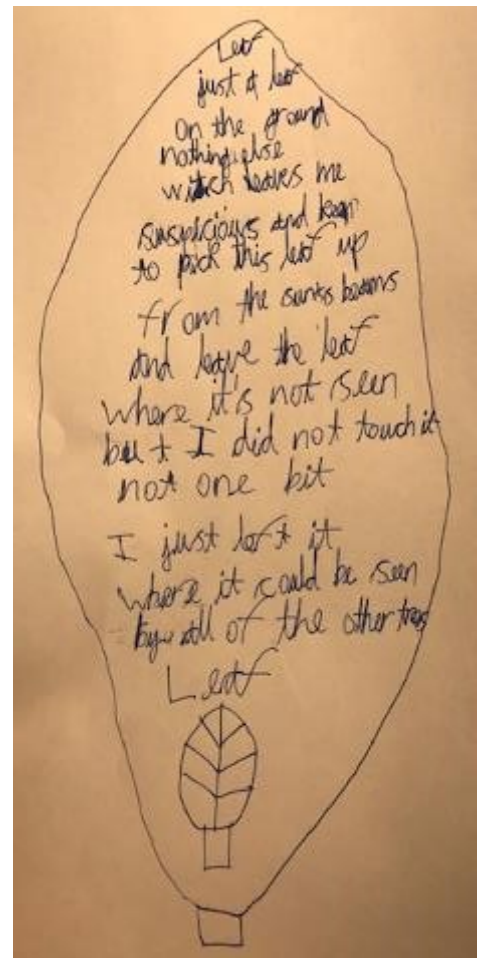 Leaf
just a leaf
on the ground
nothing else
witch leaves me
suspicious and keen
to pick this leaf up
from the suns beams
and leave the leaf
where it's not seen
but I did not touch it
not one bit
I just left it
where it could be seen
by all of the other trees
Leaf